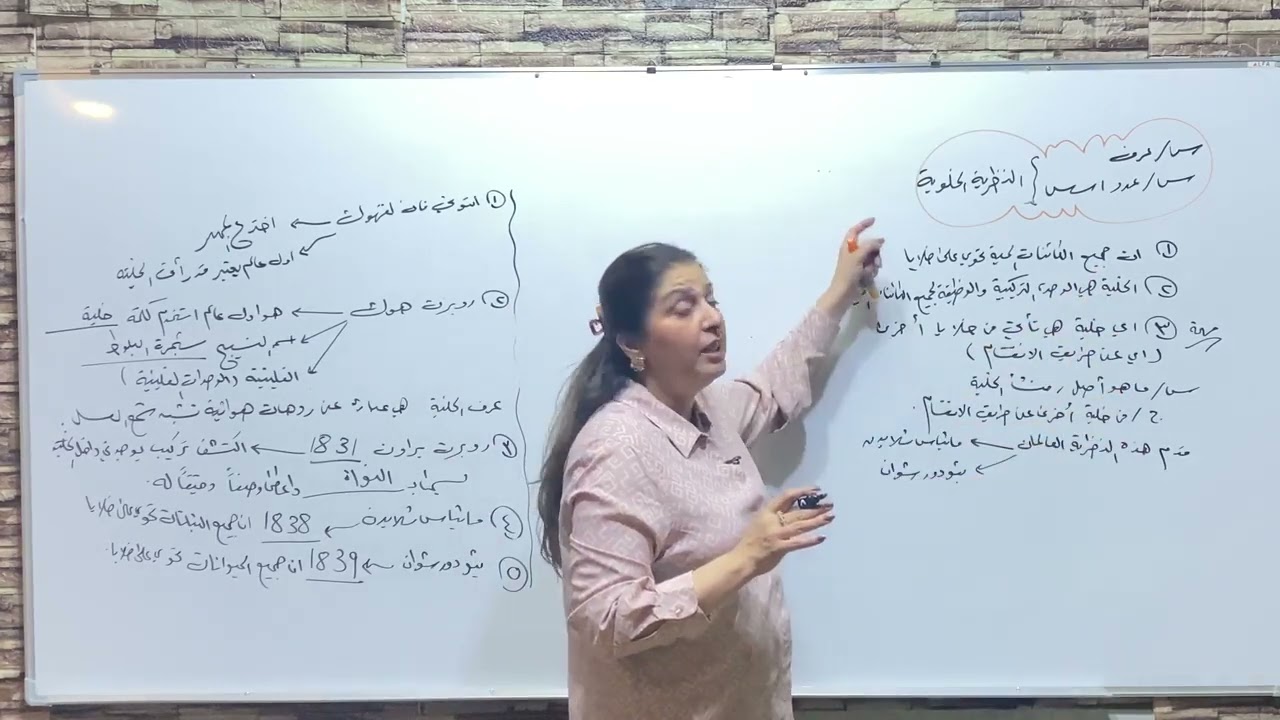 س/عرف
س/عدد اسس } النظرية الخلوية
① ان جميع الكائنات الحية تحتوي على خلايا
② الخلية هي الوحدة التركيبية والوظيفية لجميع
مهمة ③ اي خلية هي تأتي من خلايا أخرى
(اي عن طريق الانقسام)
س/ ما هو أصل ومنشأ الخلية
ج/ من خلية أخرى عن طريق الانقسام.
قدم هذه النظرية العالمان ← ماثياس شلايدن
← ثيودور شوان
① انتوني فان ليفنهوك ← اخترع المجهر
← اول عالم يعتبر قد رأى الخلية
② روبرت هوك ← هو اول عالم استخدم كلمة خلية
← اسم النسيج شجرة البلوط
← الفلينية (الوحدات الفلينية)
عرف الخلية هي عبارة عن ردهات هوائية تشبه شمع العسل
③ روبرت براون 1831 ← اكتشف تركيب يوجد في داخل الخلية
يسمى بـ النواة واعطى وصفاً دقيقاً له.
④ ماثياس شلايدن ← 1838 ان جميع النباتات تحتوي على خلايا
⑤ ثيودور شوان ← 1839 ان جميع الحيوانات تحتوي على خلايا.